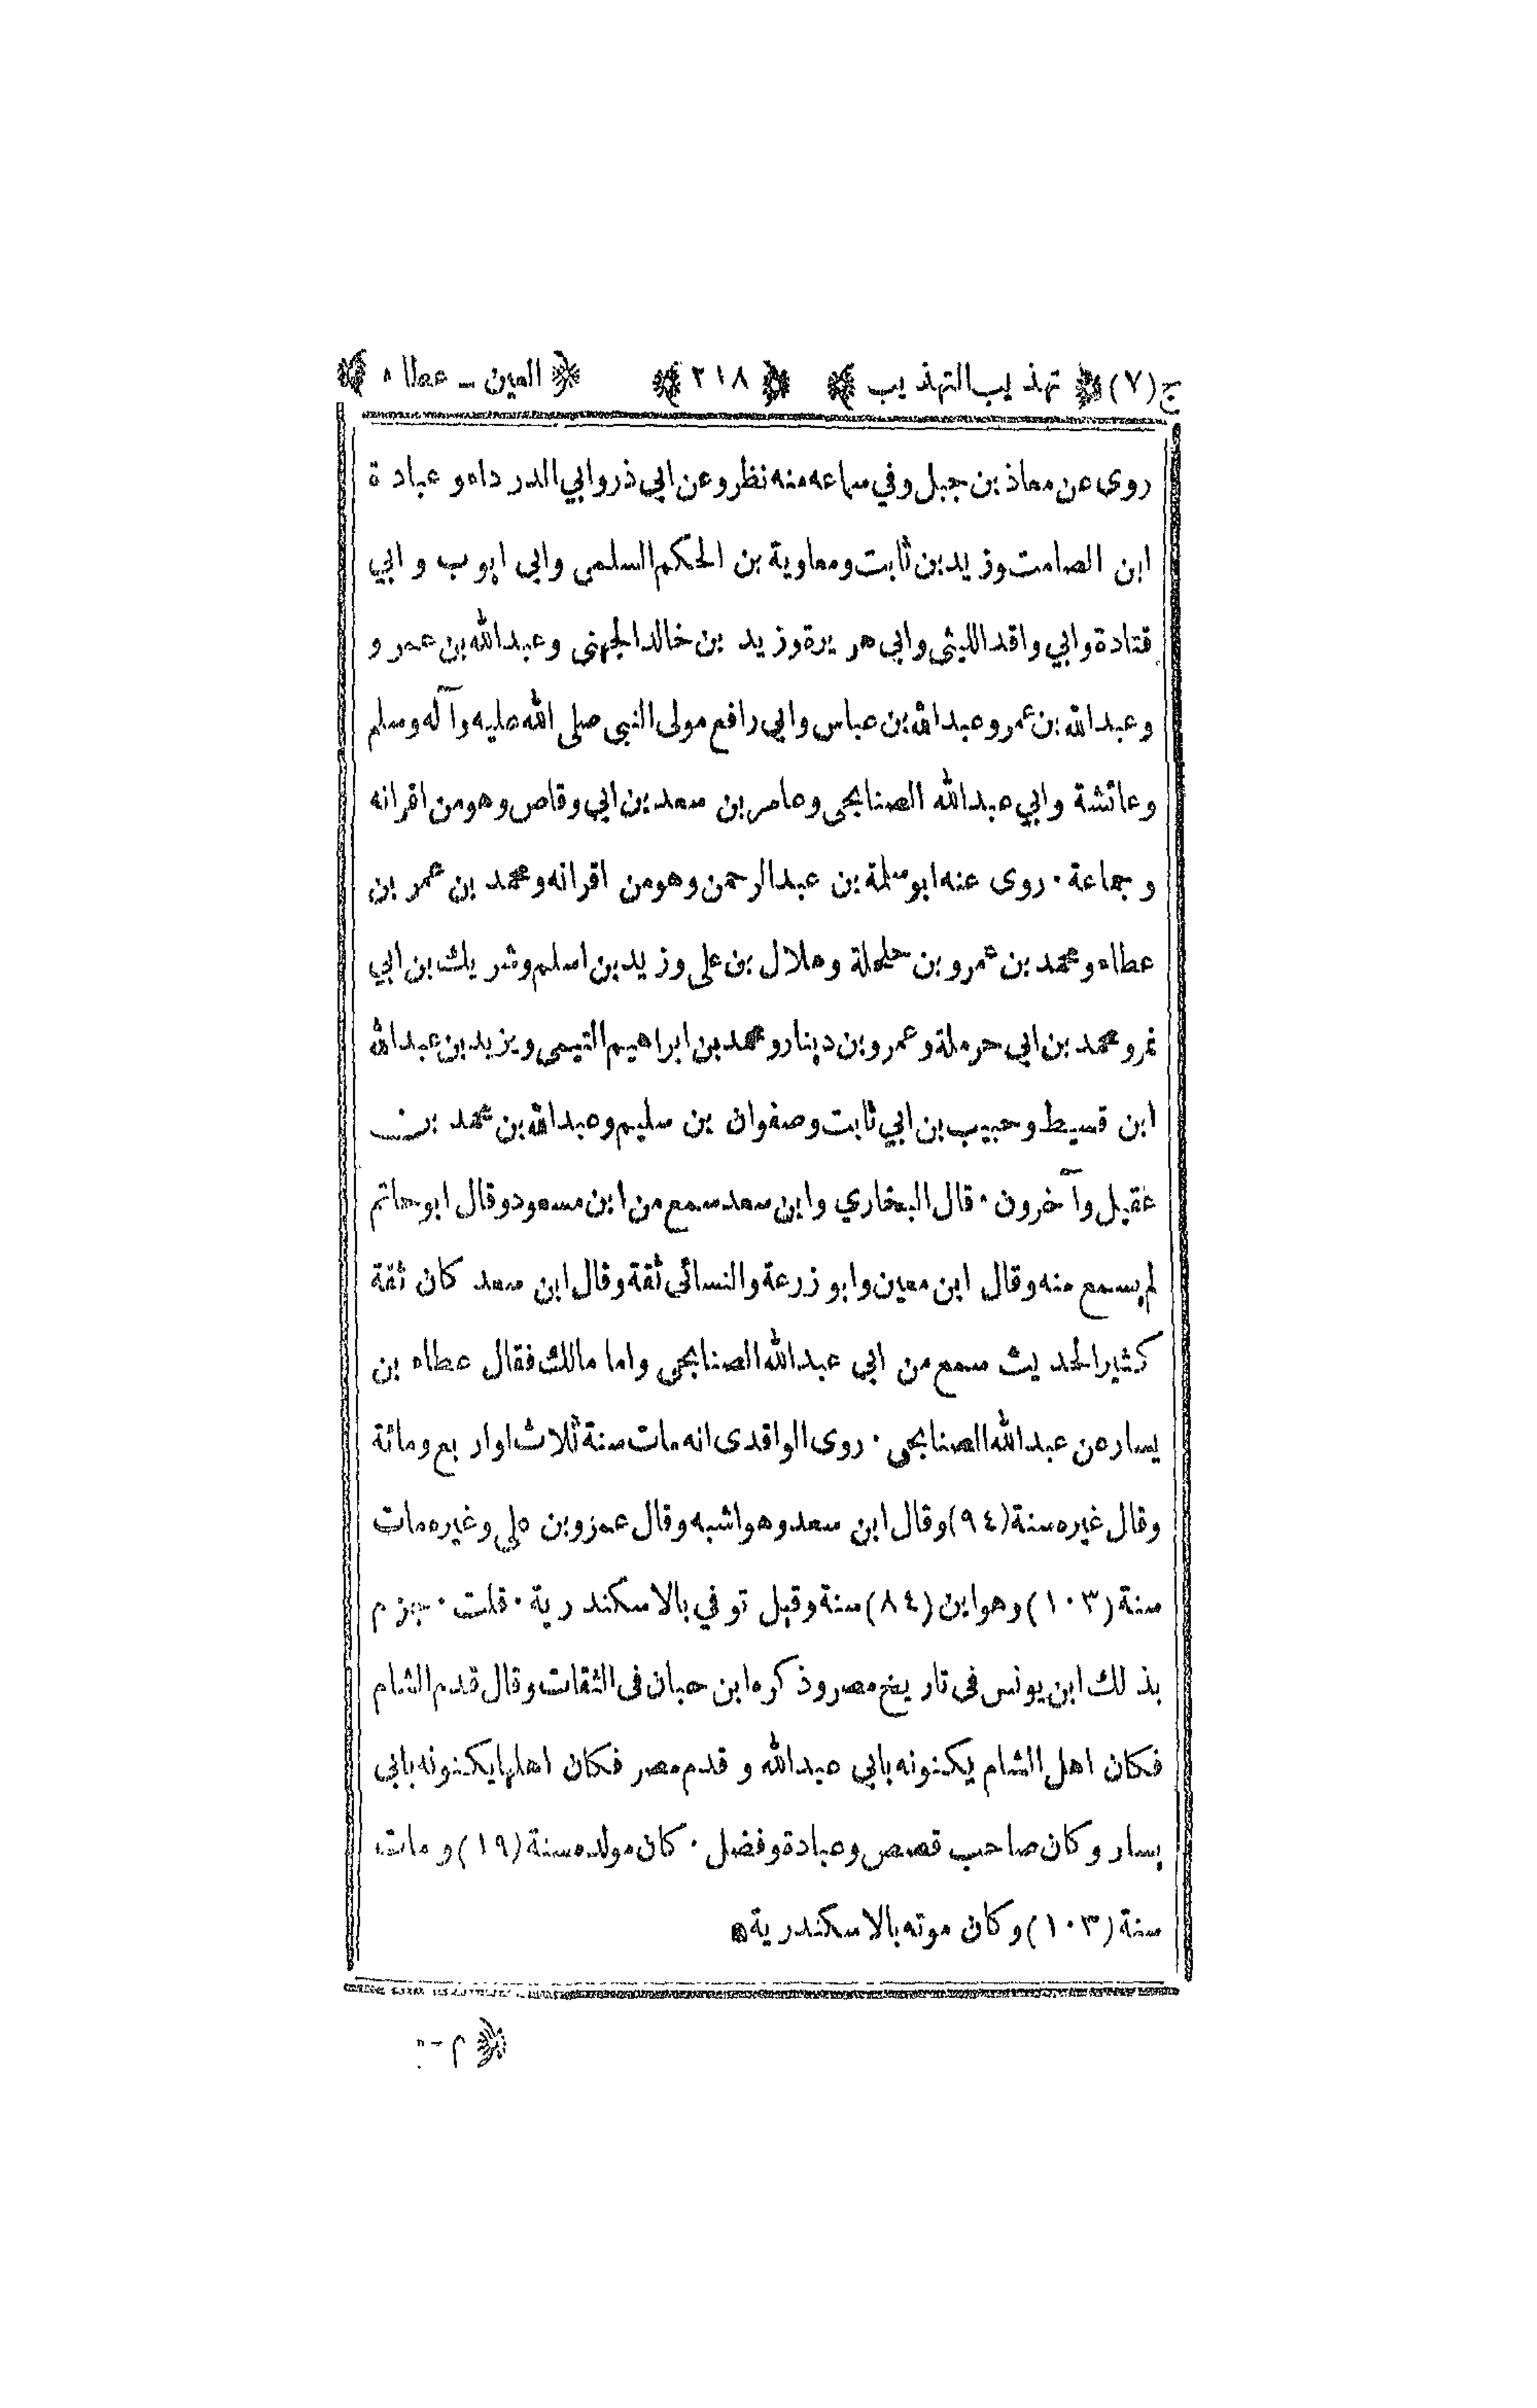 ج(٧) ﴿ تهذيب التهذيب ﴾ ﴿ ٢١٨ ﴾ ﴿ العين - عطاء ﴾
روى عن معاذ بن جبل وفي سماعه منه نظر وعن ابي ذر وابي الدرداء وعبادة
ابن الصامت وزيد بن ثابت ومعاوية بن الحكم السلمي وابى ايوب وابي
قتادة وابي واقد الليثى وابي هريرة وزيد بن خالد الجهنى وعبد الله بن عمرو
وعبد الله بن عمر وعبد الله بن عباس وابي رافع مولى النبى صلى الله عليه وآله وسلم
وعائشة وابي عبد الله الصنابحى وعامر بن سعد بن ابي وقاص وهو من اقرانه
وجماعة ٠ روى عنه ابو سلمة بن عبد الرحمن وهو من اقرانه ومحمد بن عمر بن
عطاء ومحمد بن عمرو بن حلحلة وهلال بن على وزيد بن اسلم وشريك بن ابي
نمر ومحمد بن ابي حرملة وعمرو بن دينار ومحمد بن ابراهيم التيمى ويزيد بن عبد الله
ابن قسيط وحبيب بن ابي ثابت وصفوان بن سليم وعبد الله بن محمد بن
عقيل وآخرون ٠ قال البخاري وابن سعد سمع من ابن مسعود وقال ابو حاتم
لم يسمع منه وقال ابن معين وابو زرعة والنسائى ثقة وقال ابن سعد كان ثقة
كثير الحديث سمع من ابي عبد الله الصنابحى واما مالك فقال عطاء بن
يسار عن عبد الله الصنابحى ٠ روى الواقدى انه مات سنة ثلاث او اربع ومائة
وقال غيره سنة (٩٤) وقال ابن سعد وهو اشبه وقال عمرو بن على وغيره مات
سنة (١٠٣) وهو ابن (٨٤) سنة وقيل توفي بالاسكندرية ٠ قلت ٠ جزم
بذلك ابن يونس فى تاريخ مصر وذكره ابن حبان فى الثقات وقال قدم الشام
فكان اهل الشام يكنونه بابي عبد الله وقدم مصر فكان اهلها يكنونه بابي
يسار وكان صاحب قصص وعبادة وفضل ٠ كان مولده سنة (١٩) ومات
سنة (١٠٣) وكان موته بالاسكندرية